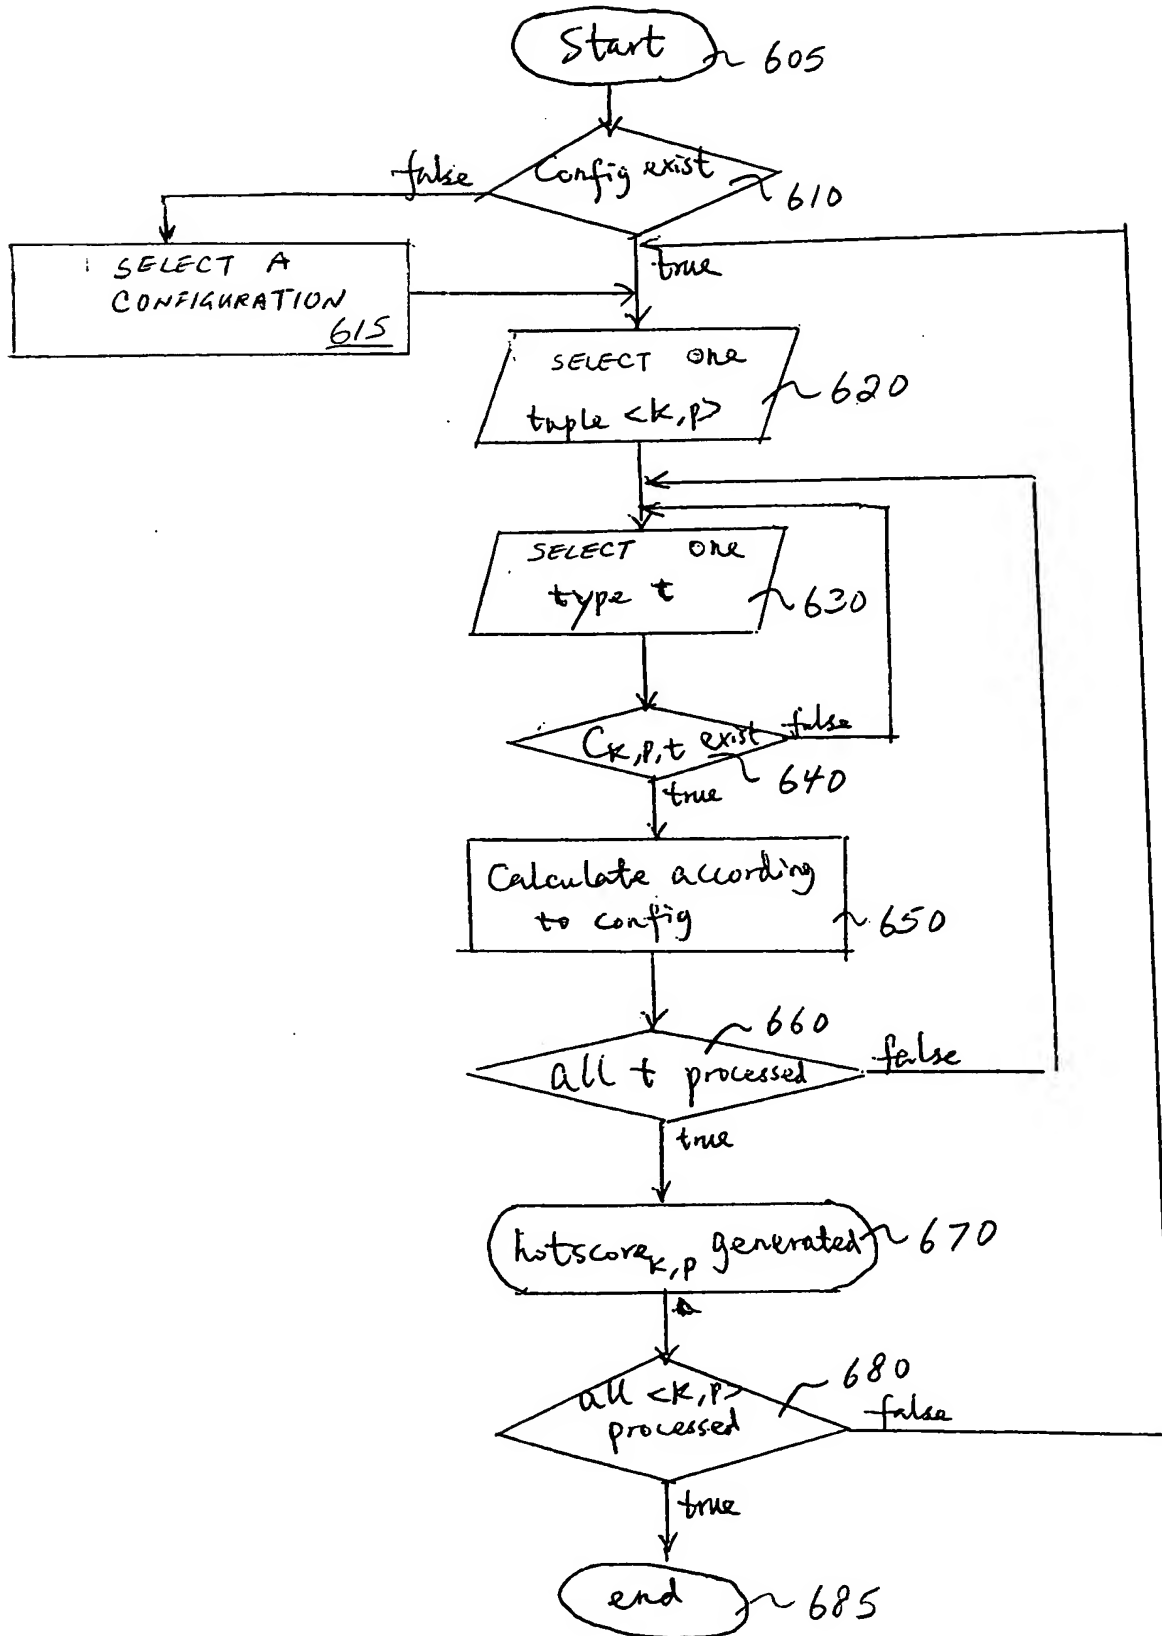 Start
605
Config exist
610
false
SELECT A
CONFIGURATION
615
true
SELECT one
tuple <k,p>
620
SELECT one
type t
630
CK,P,t exist
false
640
true
Calculate according
to config
650
660
all t processed
false
true
hotscoreK,P generated
670
680
all <K,P>
processed
false
true
end
685